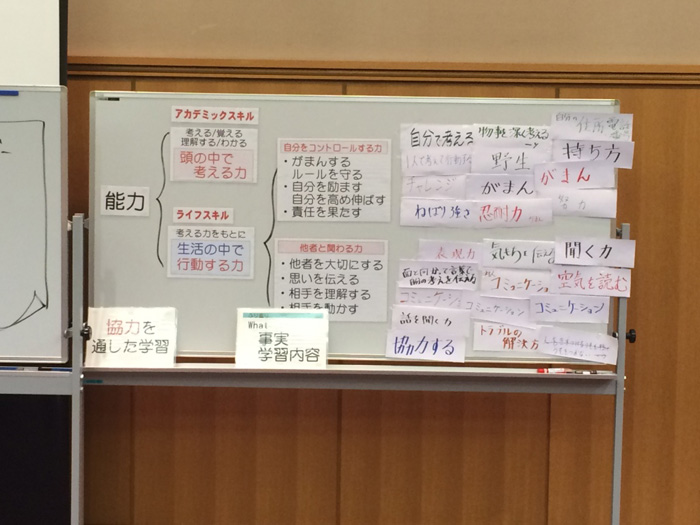 能力
アカデミックスキル
考える/覚える
理解する/わかる
頭の中で
考える力
ライフスキル
考える力をもとに
生活の中で
行動する力
自分をコントロールする力
・がまんする
ルールを守る
・自分を励ます
自分を高め伸ばす
・責任を果たす
他者と関わる力
・他者を大切にする
・思いを伝える
・相手を理解する
・相手を動かす
協力を
通した学習
What
事実
学習内容
自分で考える
物事を深く考える
野生
持ち方
チャレンジ
がまん
がまん
ねばり強さ
忍耐力
努力
表現力
気もちを伝える
聞く力
面と向かって言葉で
コミュニケーション
空気を読む
コミュニケーション
コミュニケーション
コミュニケーション
話を聞く力
協力する
トラブルの
解決方